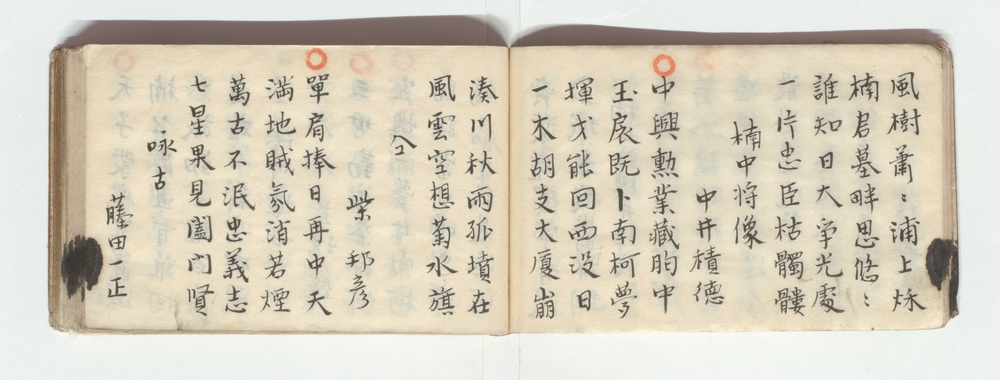 風樹蕭〻浦上秌
楠君墓畔思悠〻
誰知日大争光處
一片忠臣枯髑髏
楠中将像
中井積德
中興勲業藏胸中
玉扆既卜南柯夢
揮戈能回西没日
一木胡支大厦崩
湊川秋雨孤墳在
風雲空想菊水旗
仝
柴邦彦
單肩捧日再中天
満地賊氛消若煙
萬古不泯忠義志
七星果見闔門賢
咏古
藤田一正